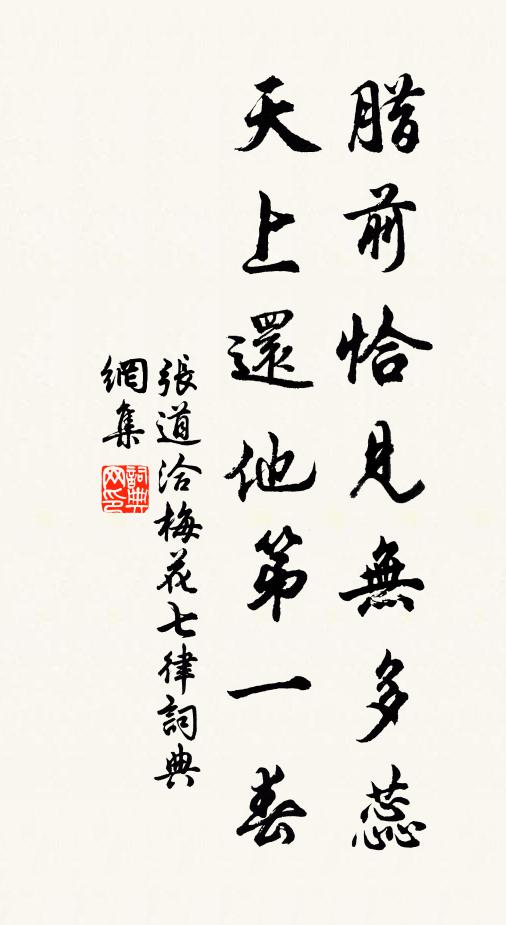 腊前恰見無多蕊
天上還他第一春
張道洽梅花七律詞典
網集
詞典網印